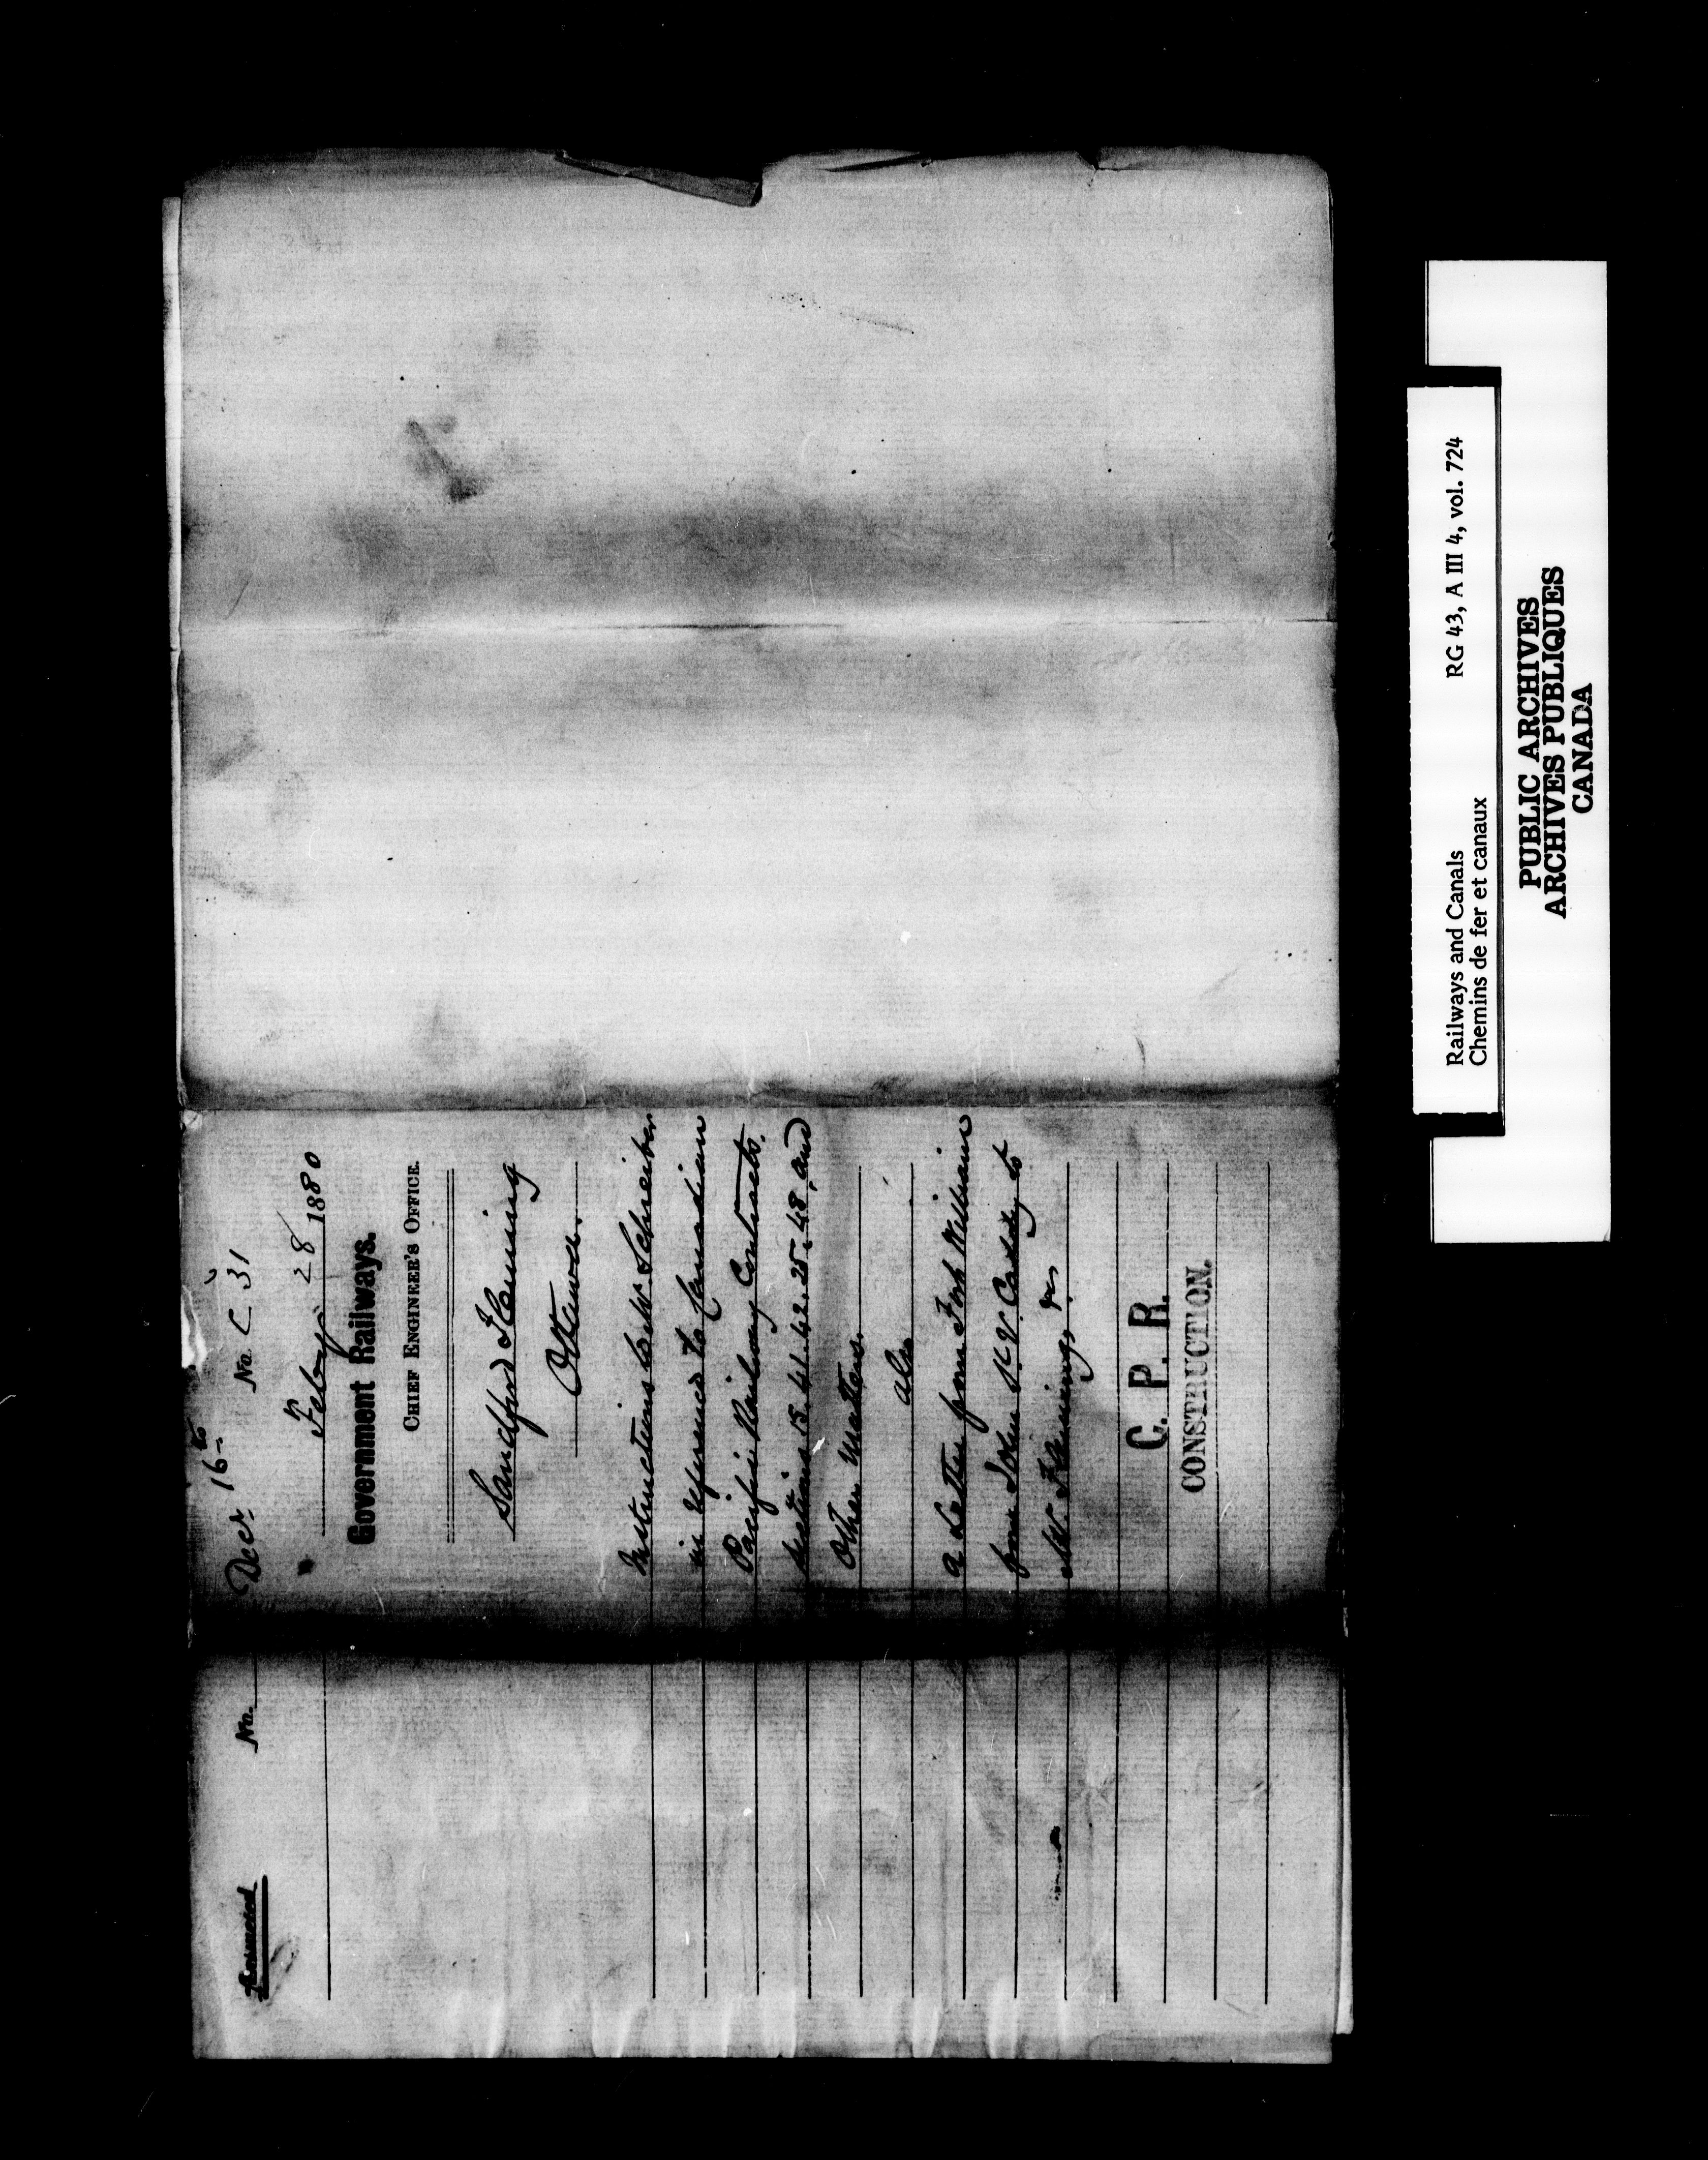 Decr 16th No. C 31
Feby 28 1880
Government Railways.
CHIEF ENGINEER'S OFFICE.
Sandford Fleming
Ottawa.
Instructions to Mr. Schreiber
in reference to Canadian
Pacific Railway Contracts.
Sections 15. 41. 42. 25. 48, and
Other Matters.
also
a Letter from Fort William
from John
Mr. Fleming,
C. P. R.
CONSTRUCTION.
No.
Railways and Canals RG 43, A III 4, vol. 724
Chemins de fer et canaux
PUBLIC ARCHIVES
ARCHIVES PUBLIQUES
CANADA